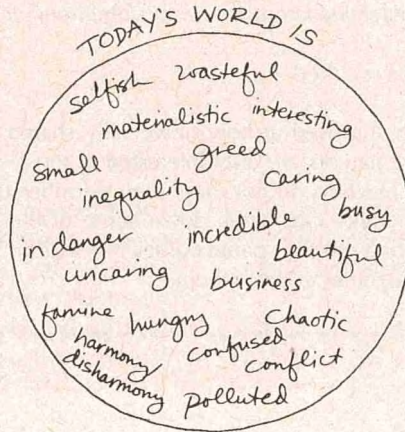 TODAY'S WORLD IS
selfish wasteful
materialistic interesting
small greed caring
inequality busy
in danger incredible beautiful
uncaring business
famine hungry chaotic
harmony confused
disharmony conflict
polluted